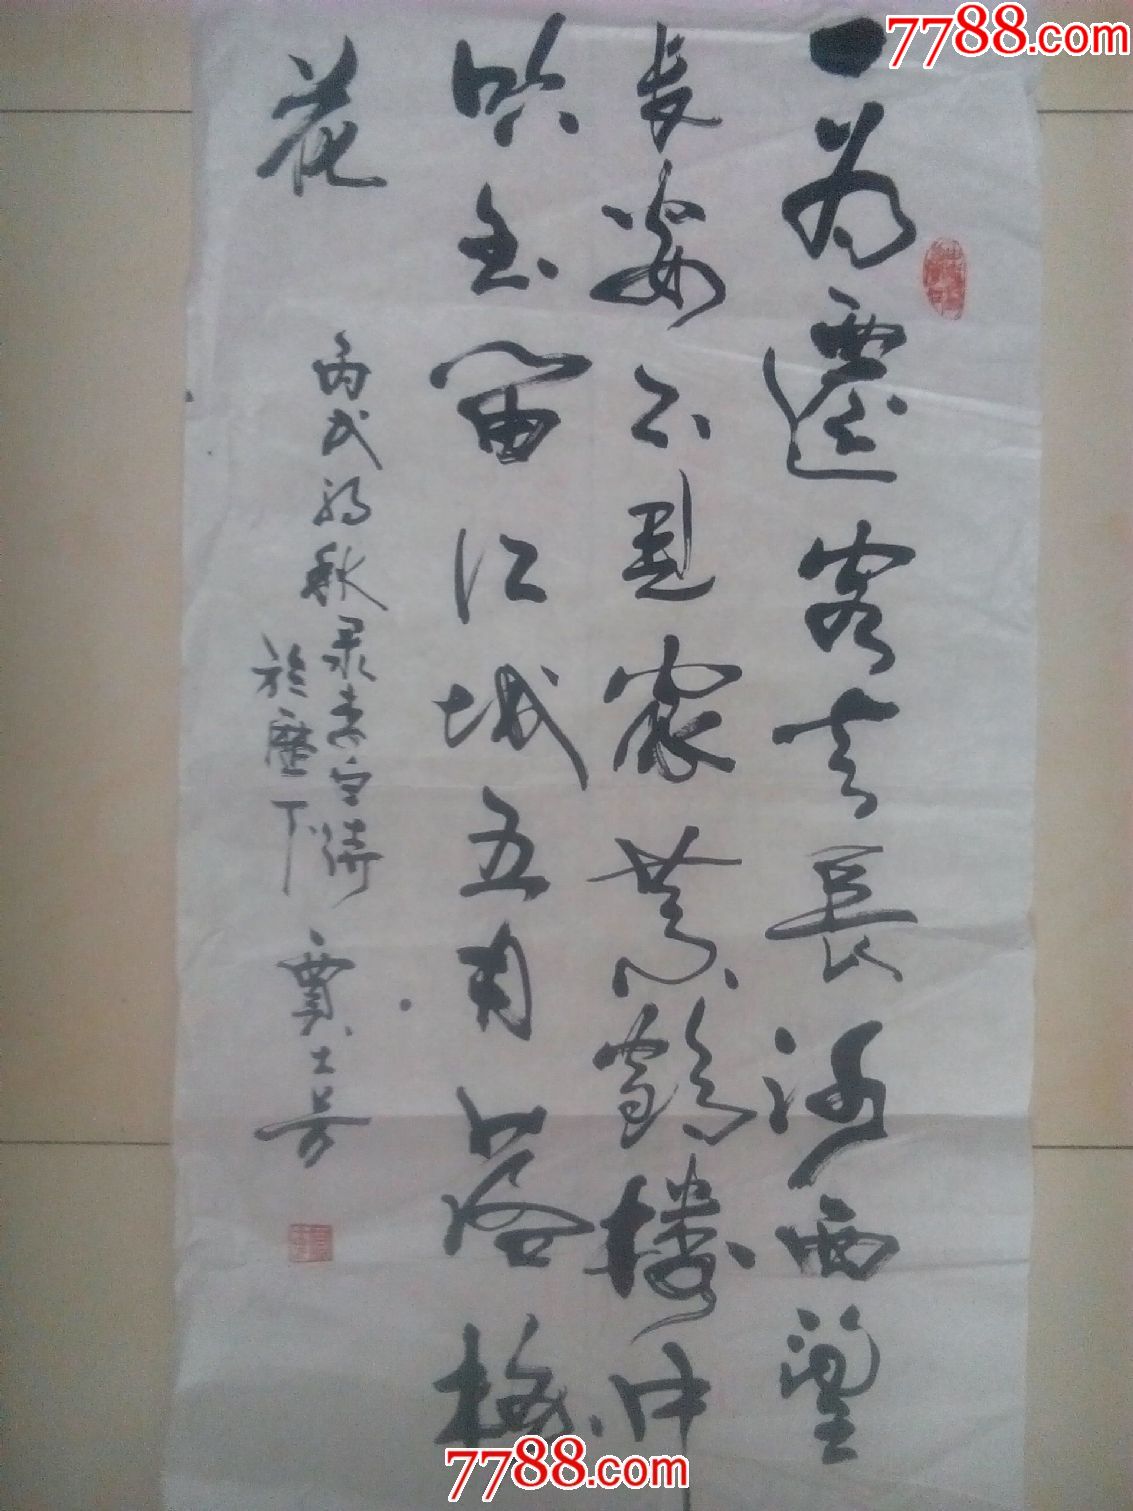 一为遷客去長沙西望
长安不見家黄鹤楼中
吹玉笛江城五月落梅
花
丙戌初秋录李白诗
於歷下
賈士芳
7788.com
7788.com